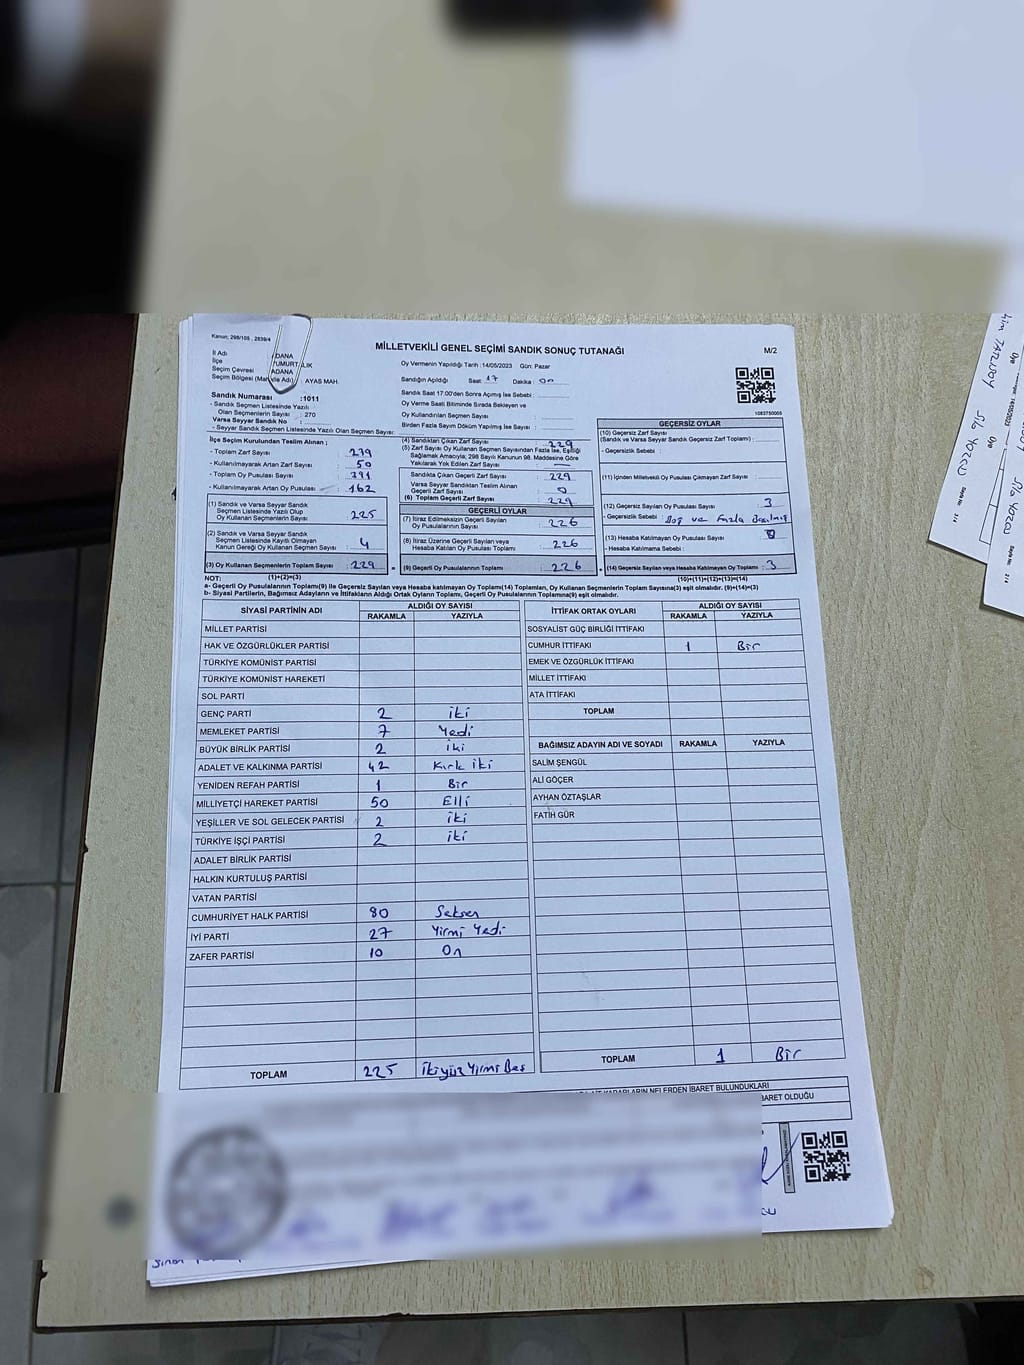 Kanun: 298/105 , 2839/4
MİLLETVEKİLİ GENEL SEÇİMİ SANDIK SONUÇ TUTANAĞI
M/2
İl Adı ADANA
İlçe YUMURTALIK
Seçim Çevresi ADANA
Seçim Bölgesi (Mahalle Adı) AYAS MAH.
Sandık Numarası :1011
- Sandık Seçmen Listesinde Yazılı
Olan Seçmenlerin Sayısı : 270
Varsa Seyyar Sandık No :
- Seyyar Sandık Seçmen Listesinde Yazılı Olan Seçmen Sayısı:
Oy Vermenin Yapıldığı Tarih :14/05/2023 Gün: Pazar
Sandığın Açıldığı Saat :17 Dakika : 00
Sandık Saat 17:00'den Sonra Açılmış İse Sebebi :
Oy Verme Saati Bitiminde Sırada Bekleyen ve
Oy Kullandırılan Seçmen Sayısı :
Birden Fazla Sayım Döküm Yapılmış İse Sayısı :
1083750005
İlçe Seçim Kurulundan Teslim Alınan ;
- Toplam Zarf Sayısı : 279
- Kullanılmayarak Artan Zarf Sayısı : 50
- Toplam Oy Pusulası Sayısı : 391
- Kullanılmayarak Artan Oy Pusulası : 162
(1) Sandık ve Varsa Seyyar Sandık
Seçmen Listesinde Yazılı Olup
Oy Kullanan Seçmenlerin Sayısı : 225
(2) Sandık ve Varsa Seyyar Sandık
Seçmen Listesinde Kayıtlı Olmayan
Kanun Gereği Oy Kullanan Seçmen Sayısı : 4
(3) Oy Kullanan Seçmenlerin Toplam Sayısı : 229
(4) Sandıktan Çıkan Zarf Sayısı : 229
(5) Zarf Sayısı Oy Kullanan Seçmen Sayısından Fazla İse, Eşitliği
Sağlamak Amacıyla; 298 Sayılı Kanunun 98. Maddesine Göre
Yakılarak Yok Edilen Zarf Sayısı : —
Sandıkta Çıkan Geçerli Zarf Sayısı : 229
Varsa Seyyar Sandıktan Teslim Alınan
Geçerli Zarf Sayısı : 0
(6) Toplam Geçerli Zarf Sayısı : 229
GEÇERLİ OYLAR
(7) İtiraz Edilmeksizin Geçerli Sayılan
Oy Pusulalarının Sayısı : 226
(8) İtiraz Üzerine Geçerli Sayılan veya
Hesaba Katılan Oy Pusulası Toplamı : 226
(9) Geçerli Oy Pusulalarının Toplamı : 226
GEÇERSİZ OYLAR
(10) Geçersiz Zarf Sayısı
(Sandık ve Varsa Seyyar Sandık Geçersiz Zarf Toplamı) :
- Geçersizlik Sebebi :
(11) İçinden Milletvekili Oy Pusulası Çıkmayan Zarf Sayısı :
(12) Geçersiz Sayılan Oy Pusulası Sayısı : 3
- Geçersizlik Sebebi : Boş ve Fazla Basılmış
(13) Hesaba Katılmayan Oy Pusulası Sayısı : 0
- Hesaba Katılmama Sebebi :
(14) Geçersiz Sayılan veya Hesaba Katılmayan Oy Toplamı : 3
NOT: (1)+(2)=(3) (10)+(11)+(12)+(13)=(14)
a- Geçerli Oy Pusulalarının Toplamı(9) ile Geçersiz Sayılan veya Hesaba katılmayan Oy Toplamı(14) Toplamları, Oy Kullanan Seçmenlerin Toplam Sayısına(3) eşit olmalıdır. (9)+(14)=(3)
b- Siyasi Partilerin, Bağımsız Adayların ve İttifakların Aldığı Ortak Oyların Toplamı, Geçerli Oy Pusulalarının Toplamına(9) eşit olmalıdır.
SİYASİ PARTİNİN ADI ALDIĞI OY SAYISI
RAKAMLA YAZIYLA
MİLLET PARTİSİ
HAK VE ÖZGÜRLÜKLER PARTİSİ
TÜRKİYE KOMÜNİST PARTİSİ
TÜRKİYE KOMÜNİST HAREKETİ
SOL PARTİ
GENÇ PARTİ 2 iki
MEMLEKET PARTİSİ 7 Yedi
BÜYÜK BİRLİK PARTİSİ 2 iki
ADALET VE KALKINMA PARTİSİ 42 Kırk iki
YENİDEN REFAH PARTİSİ 1 Bir
MİLLİYETÇİ HAREKET PARTİSİ 50 Elli
YEŞİLLER VE SOL GELECEK PARTİSİ 2 iki
TÜRKİYE İŞÇİ PARTİSİ 2 iki
ADALET BİRLİK PARTİSİ
HALKIN KURTULUŞ PARTİSİ
VATAN PARTİSİ
CUMHURİYET HALK PARTİSİ 80 Seksen
İYİ PARTİ 27 Yirmi Yedi
ZAFER PARTİSİ 10 On
TOPLAM 225 İkiyüz Yirmi Beş
İTTİFAK ORTAK OYLARI ALDIĞI OY SAYISI
RAKAMLA YAZIYLA
SOSYALİST GÜÇ BİRLİĞİ İTTİFAKI
CUMHUR İTTİFAKI 1 Bir
EMEK VE ÖZGÜRLÜK İTTİFAKI
MİLLET İTTİFAKI
ATA İTTİFAKI
TOPLAM
BAĞIMSIZ ADAYIN ADI VE SOYADI RAKAMLA YAZIYLA
SALİM ŞENGÜL
ALİ GÖÇER
AYHAN ÖZTAŞLAR
FATİH GÜR
TOPLAM 1 Bir
KARARLARIN NELERDEN İBARET BULUNDUKLARI
İBARET OLDUĞU